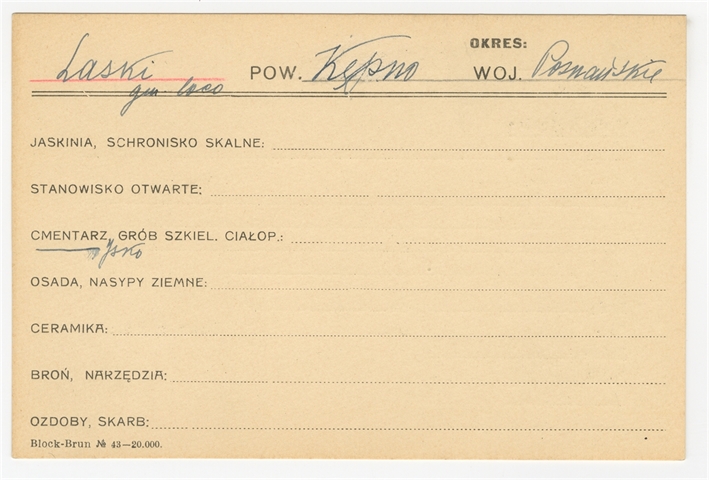 OKRES:
Laski POW. Kępno WOJ. Poznańskie
gm. loco
JASKINIA, SCHRONISKO SKALNE:
STANOWISKO OTWARTE:
CMENTARZ, GRÓB SZKIEL. CIAŁOP.:
ysko
OSADA, NASYPY ZIEMNE:
CERAMIKA:
BROŃ, NARZĘDZIA:
OZDOBY, SKARB:
Block-Brun № 43—20.000.